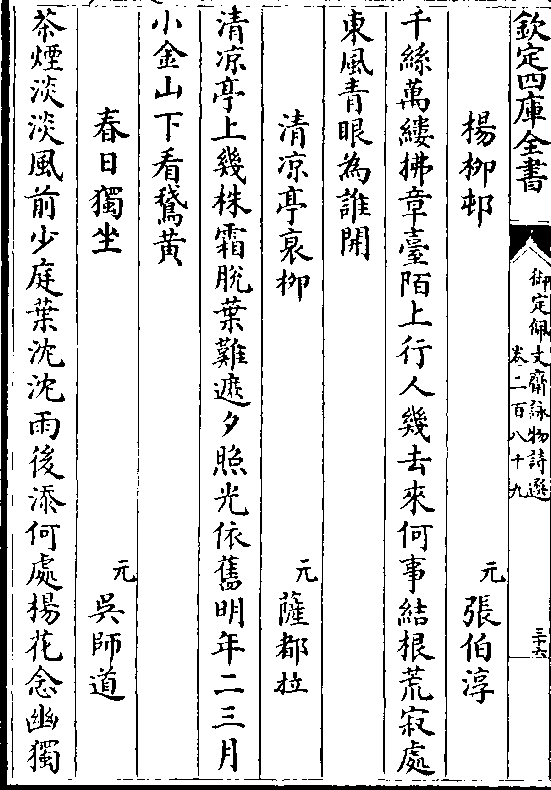 欽定四庫全書
御定佩文齋詠物詩選
卷二百八十九
三十六
楊柳邨
元 張伯淳
千絲萬縷拂章臺陌上行人幾去來何事結根荒寂處
東風青眼為誰開
清凉亭衰柳
元 薩都拉
清凉亭上幾株霜脫葉難遮夕照光依舊明年二三月
小金山下看鵞黄
春日獨坐
元 吳師道
茶煙淡淡風前少庭葉沈沈雨後添何處楊花念幽獨